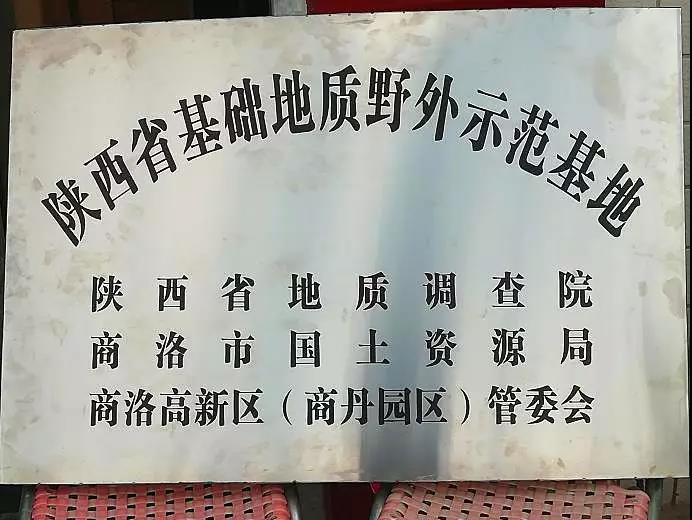 陕西省基础地质野外示范基地
陕西省地质调查院
商洛市国土资源局
商洛高新区（商丹园区）管委会